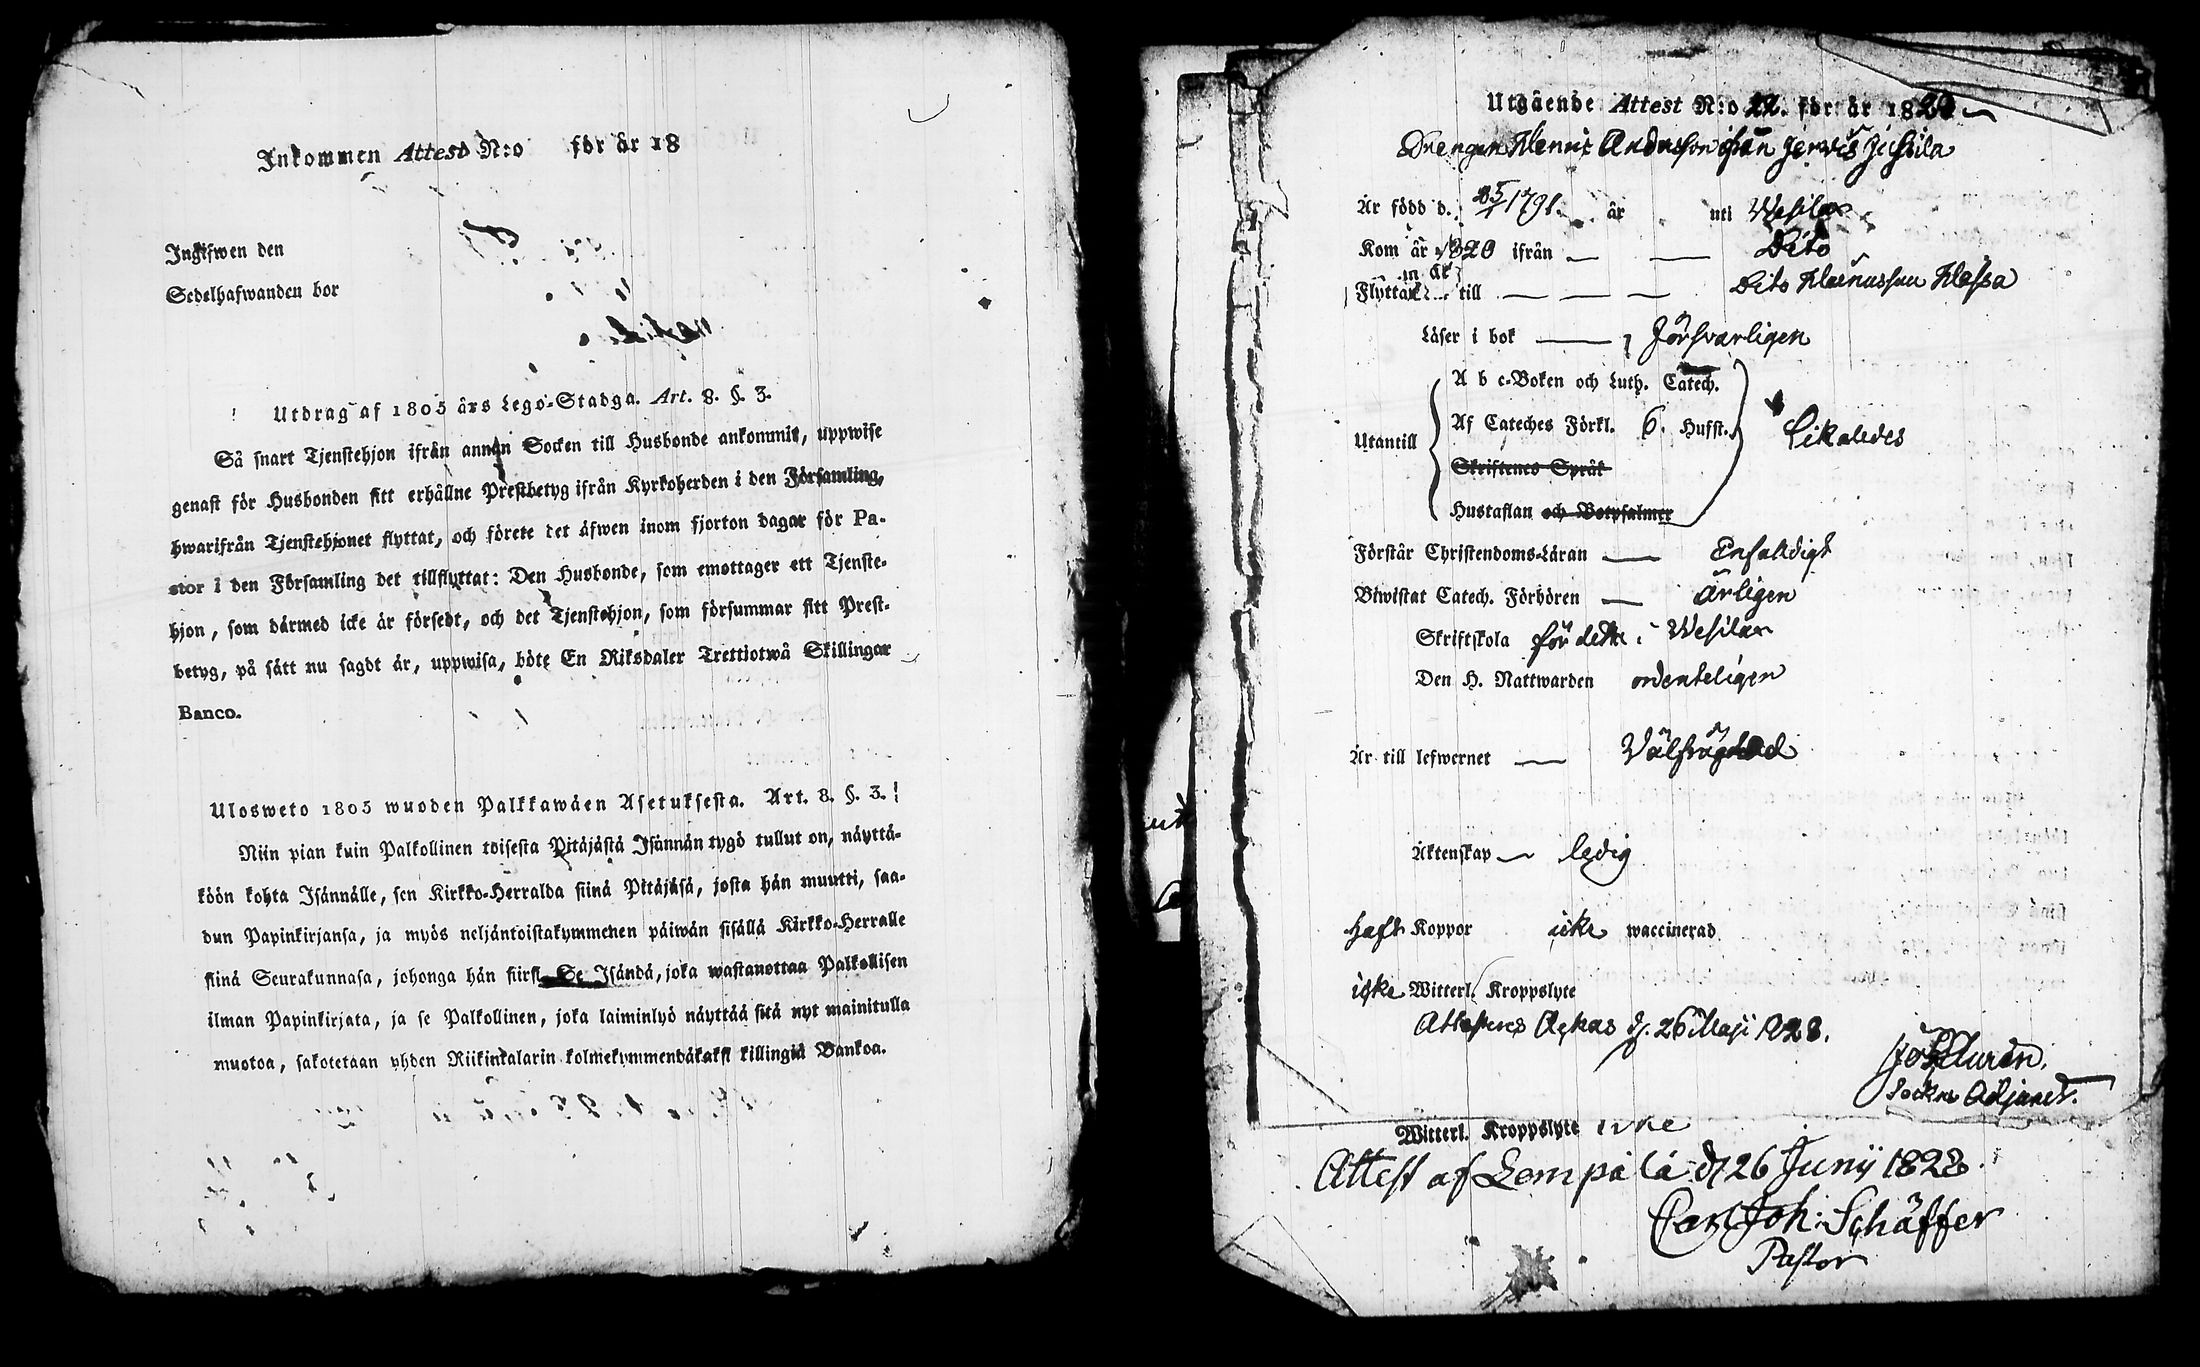 Inkommen Attest N:o för år 18
Ingifwen den
Sedelhafwanden bor
Utdrag af 1805 års Lego-Stadga. Art. 8. §. 3.
Så snart Tjenstehjon ifrån annan Socken till Husbonde ankommit, uppwise
genast för Husbonden sitt erhållne Prestbetyg ifrån Kyrkoherden i den Församling,
hwarifrån Tjenstehjonet flyttat, och förete det äfwen inom fjorton dagar för Pa-
stor i den Församling det tillflyttat: Den Husbonde, som emottager ett Tjenste-
hjon, som därmed icke är försedt, och det Tjenstehjon, som försummar sitt Prest-
betyg, på sätt nu sagdt är, uppwisa, böte En Riksdaler Trettiotwå Skillingar
Banco.
Ulosweto 1805 wuoden Palkkawäen Asetuksesta. Art. 8. §. 3.
Niin pian kuin Palkollinen toisesta Pitäjästä Isännän tygö tullut on, näyttä-
köön kohta Isännälle, sen Kirkko-Herralda siinä Pitäjäsä, josta hän muutti, saa-
dun Papinkirjansa, ja myös neljäntoistakymmenen päiwän sisällä Kirkko-Herralle
siinä Seurakunnasa, johonga hän siirsi. Se Isändä, joka wastanottaa Palkollisen
ilman Papinkirjata, ja se Palkollinen, joka laiminlyö näyttää sitä nyt mainitulla
muotoa, sakotetaan yhden Riikintalarin kolmekymmendäkaksi killingiä Bankoa.
Utgående Attest N:o 22. för år 182
Drengen Andersson ifrån Jussila
Är född d. 25/1 1791. år uti Wesilax
Kom år 1820 ifrån — — Dito
Flyttar till — — — Dito Klassa
Läser i bok — försvarligen
A b c-Boken och Luth. Catech.
Utantill Af Cateches Förkl. 6. Hufst. likaledes
Skriftenes Språk
Hustaflan och Botpsalmer
Förstår Christendoms-Läran — Enfaldigt
Biwistat Catech. Förhören — årligen
Skriftskola för detta i Wesilax
Den H. Nattwarden ordenteligen
Är till lefwernet — Välfrägdad
Äktenskap — ledig
haft Koppor icke waccinerad
icke Witterl. Kroppslyte
Attesteres Ackas d. 26 Maji 1828.
Sockne Adjunct.
Witterl. Kroppslyte icke
Attest af Lempälä d 26 Junij 1828.
Carl Joh: Schäffer
Pastor